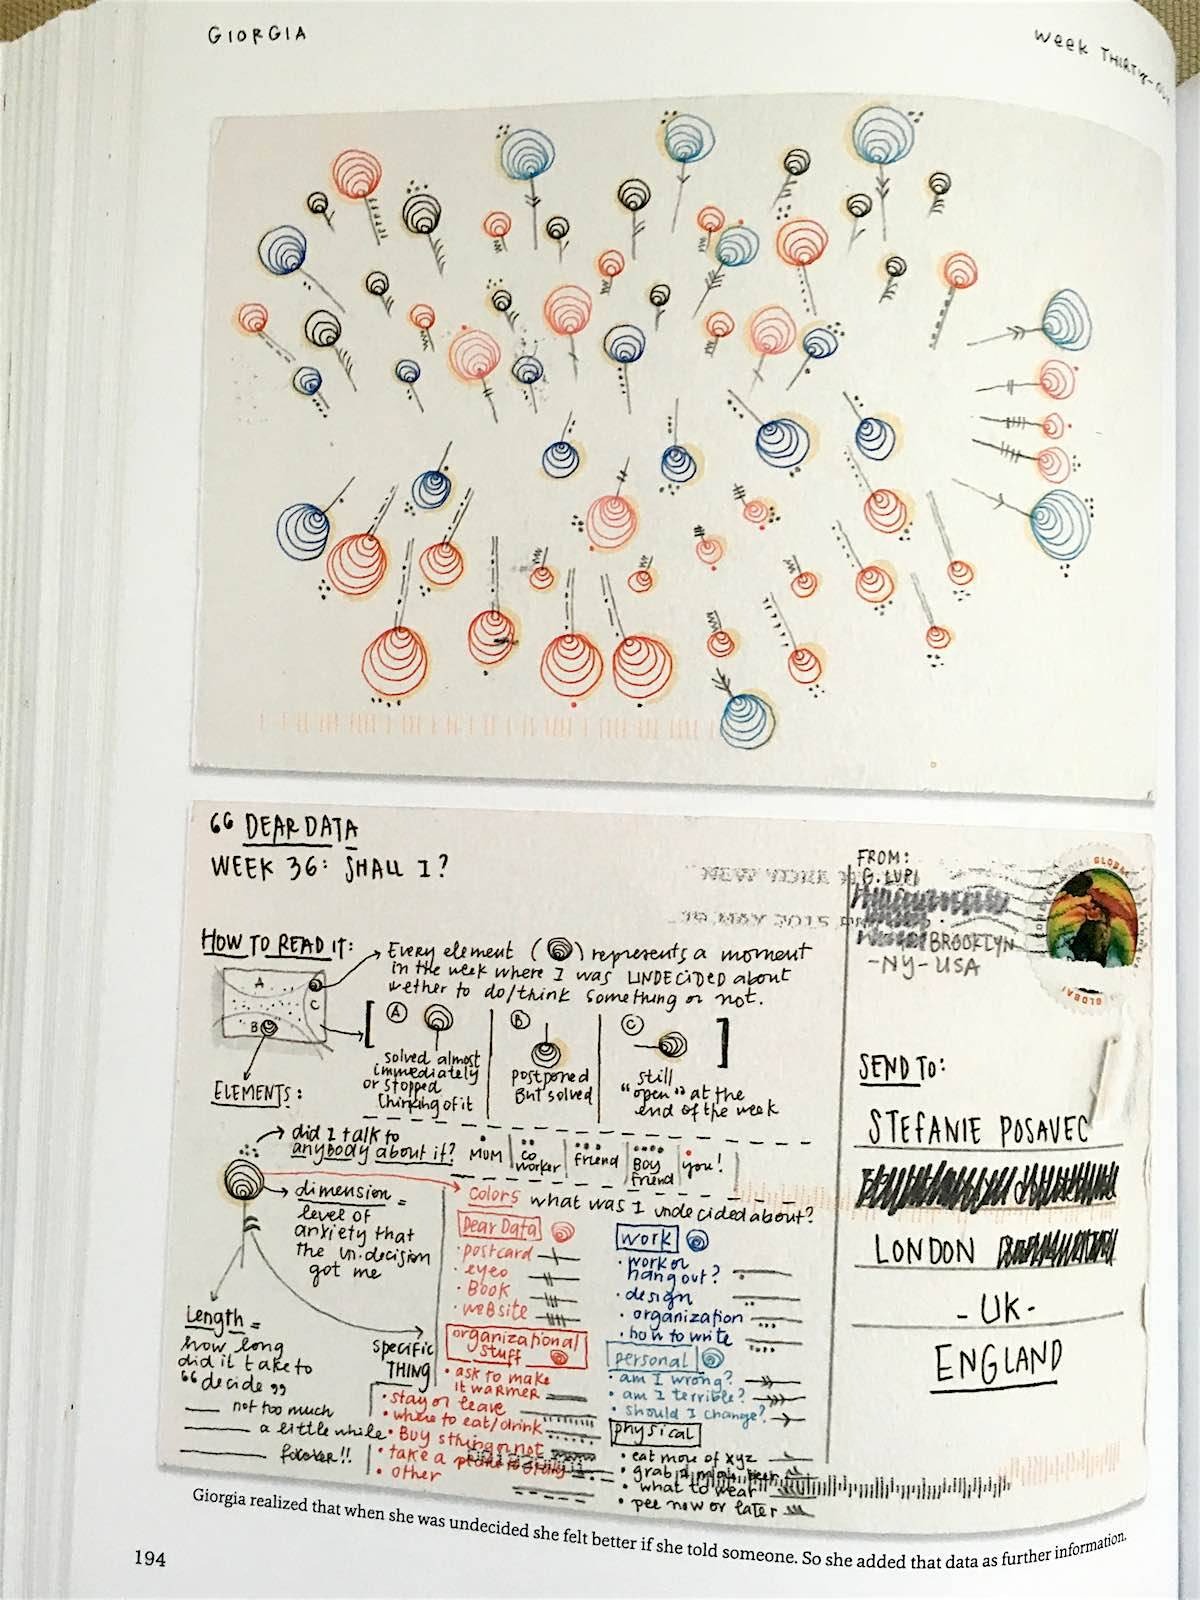 GIORGIA
WEEK THIRTY-
“ DEAR DATA
WEEK 36: SHALL I?
HOW TO READ IT:
A
C
B
Every element ( ) represents a moment
in the week where I was UNDECIDED about
wether to do/think something or not.
A
solved almost
immediately
or stopped
thinking of it
B
postponed
But solved
C
still
“open” at the
end of the week
ELEMENTS:
did I talk to
anybody about it?
MUM
co
worker
friend
Boy
friend
you!
dimension =
level of
anxiety that
the un.decision
got me
Length =
how long
did it take to
“decide”
not too much
a little while
forever!!
Specific
THING
colors what was I undecided about?
Dear Data
• postcard
• eyeo
• Book
• website
organizational
stuff
• ask to make
it warmer
• stay or leave
• where to eat/drink
• Buy sthing or not
• take a
• other
work
• work or
hang out?
• design
• organization
• how to write
personal
• am I wrong?
• am I terrible?
• should I change?
physical
• eat more of xyz
• grab a
• what to wear
• pee now or later
FROM:
G. LUPI
BROOKLYN
-NY-USA
GLOBAL
GLOBAL
SEND TO:
STEFANIE POSAVEC
LONDON
-UK-
ENGLAND
Giorgia realized that when she was undecided she felt better if she told someone. So she added that data as further information.
194